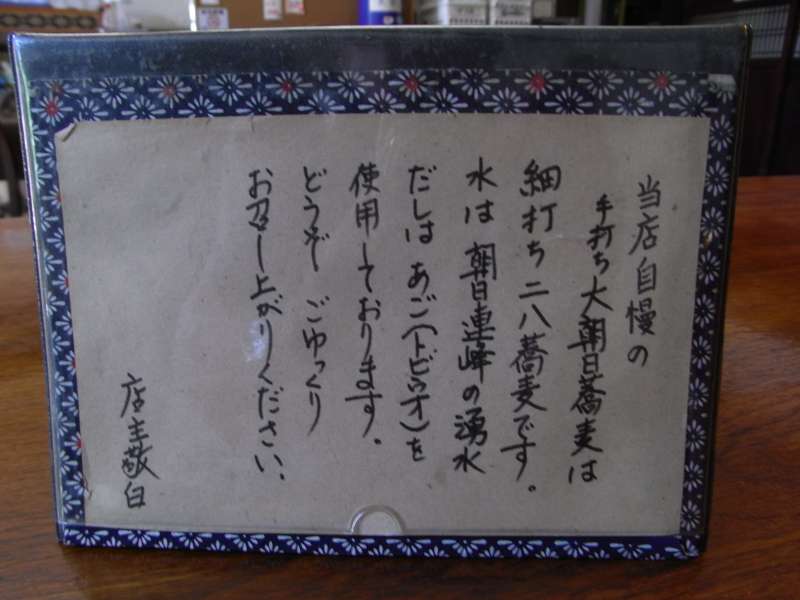 当店自慢の
手打ち大朝日蕎麦は
細打ち二八蕎麦です。
水は朝日連峰の湧水
だしはあご(トビウオ)を
使用しております。
どうぞーごゆっくり
お召し上がりください。
店主敬白